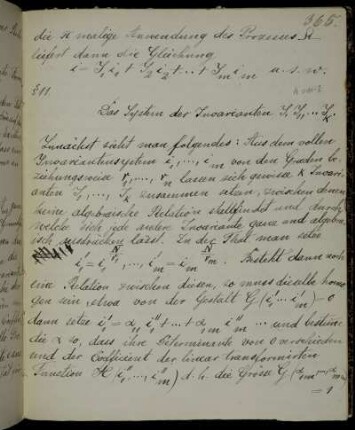 365.
die π malige Anwendung des Prozesses Ω
liefert dann die Gleichung
i = J₁ i₁ + J₂ i₂ + .. + J_m i_m u. s. w.
§11
Das System der Invarianten J₁ J₂ ... J_κ.
Zunächst sieht man folgendes: Aus dem vollen
Invariantensystem i₁, ..., i_m von den Graden be
ziehungsweise r₁, ..., r_m lassen sich gewisse κ Invari-
anten J₁, ..., J_κ zusammen setzen, zwischen denen
keine algebraische Relation stattfindet und durch
welche sich jede andere Invariante ganz und algebra-
isch ausdrücken lässt. In der That man setze
i₁' = i₁^{N/r₁}, ..., i_m' = i_m^{N/r_m}. Besteht dann noch
eine Relation zwischen diesen, so muss dieselbe homo
gen sein etwa von der Gestalt G(i₁' ... i_m') = 0
dann setze i₁' = α₁₁ i₁'' + .. + α₁m i_m'' ... und bestimme
die α so, dass ihre Determinante von 0 verschieden
und der Coefficient der linear transformirten
Function H(i₁'', ..., i_m'') d. h. die Grösse G(α₁m, ..., α_mm)
= 1